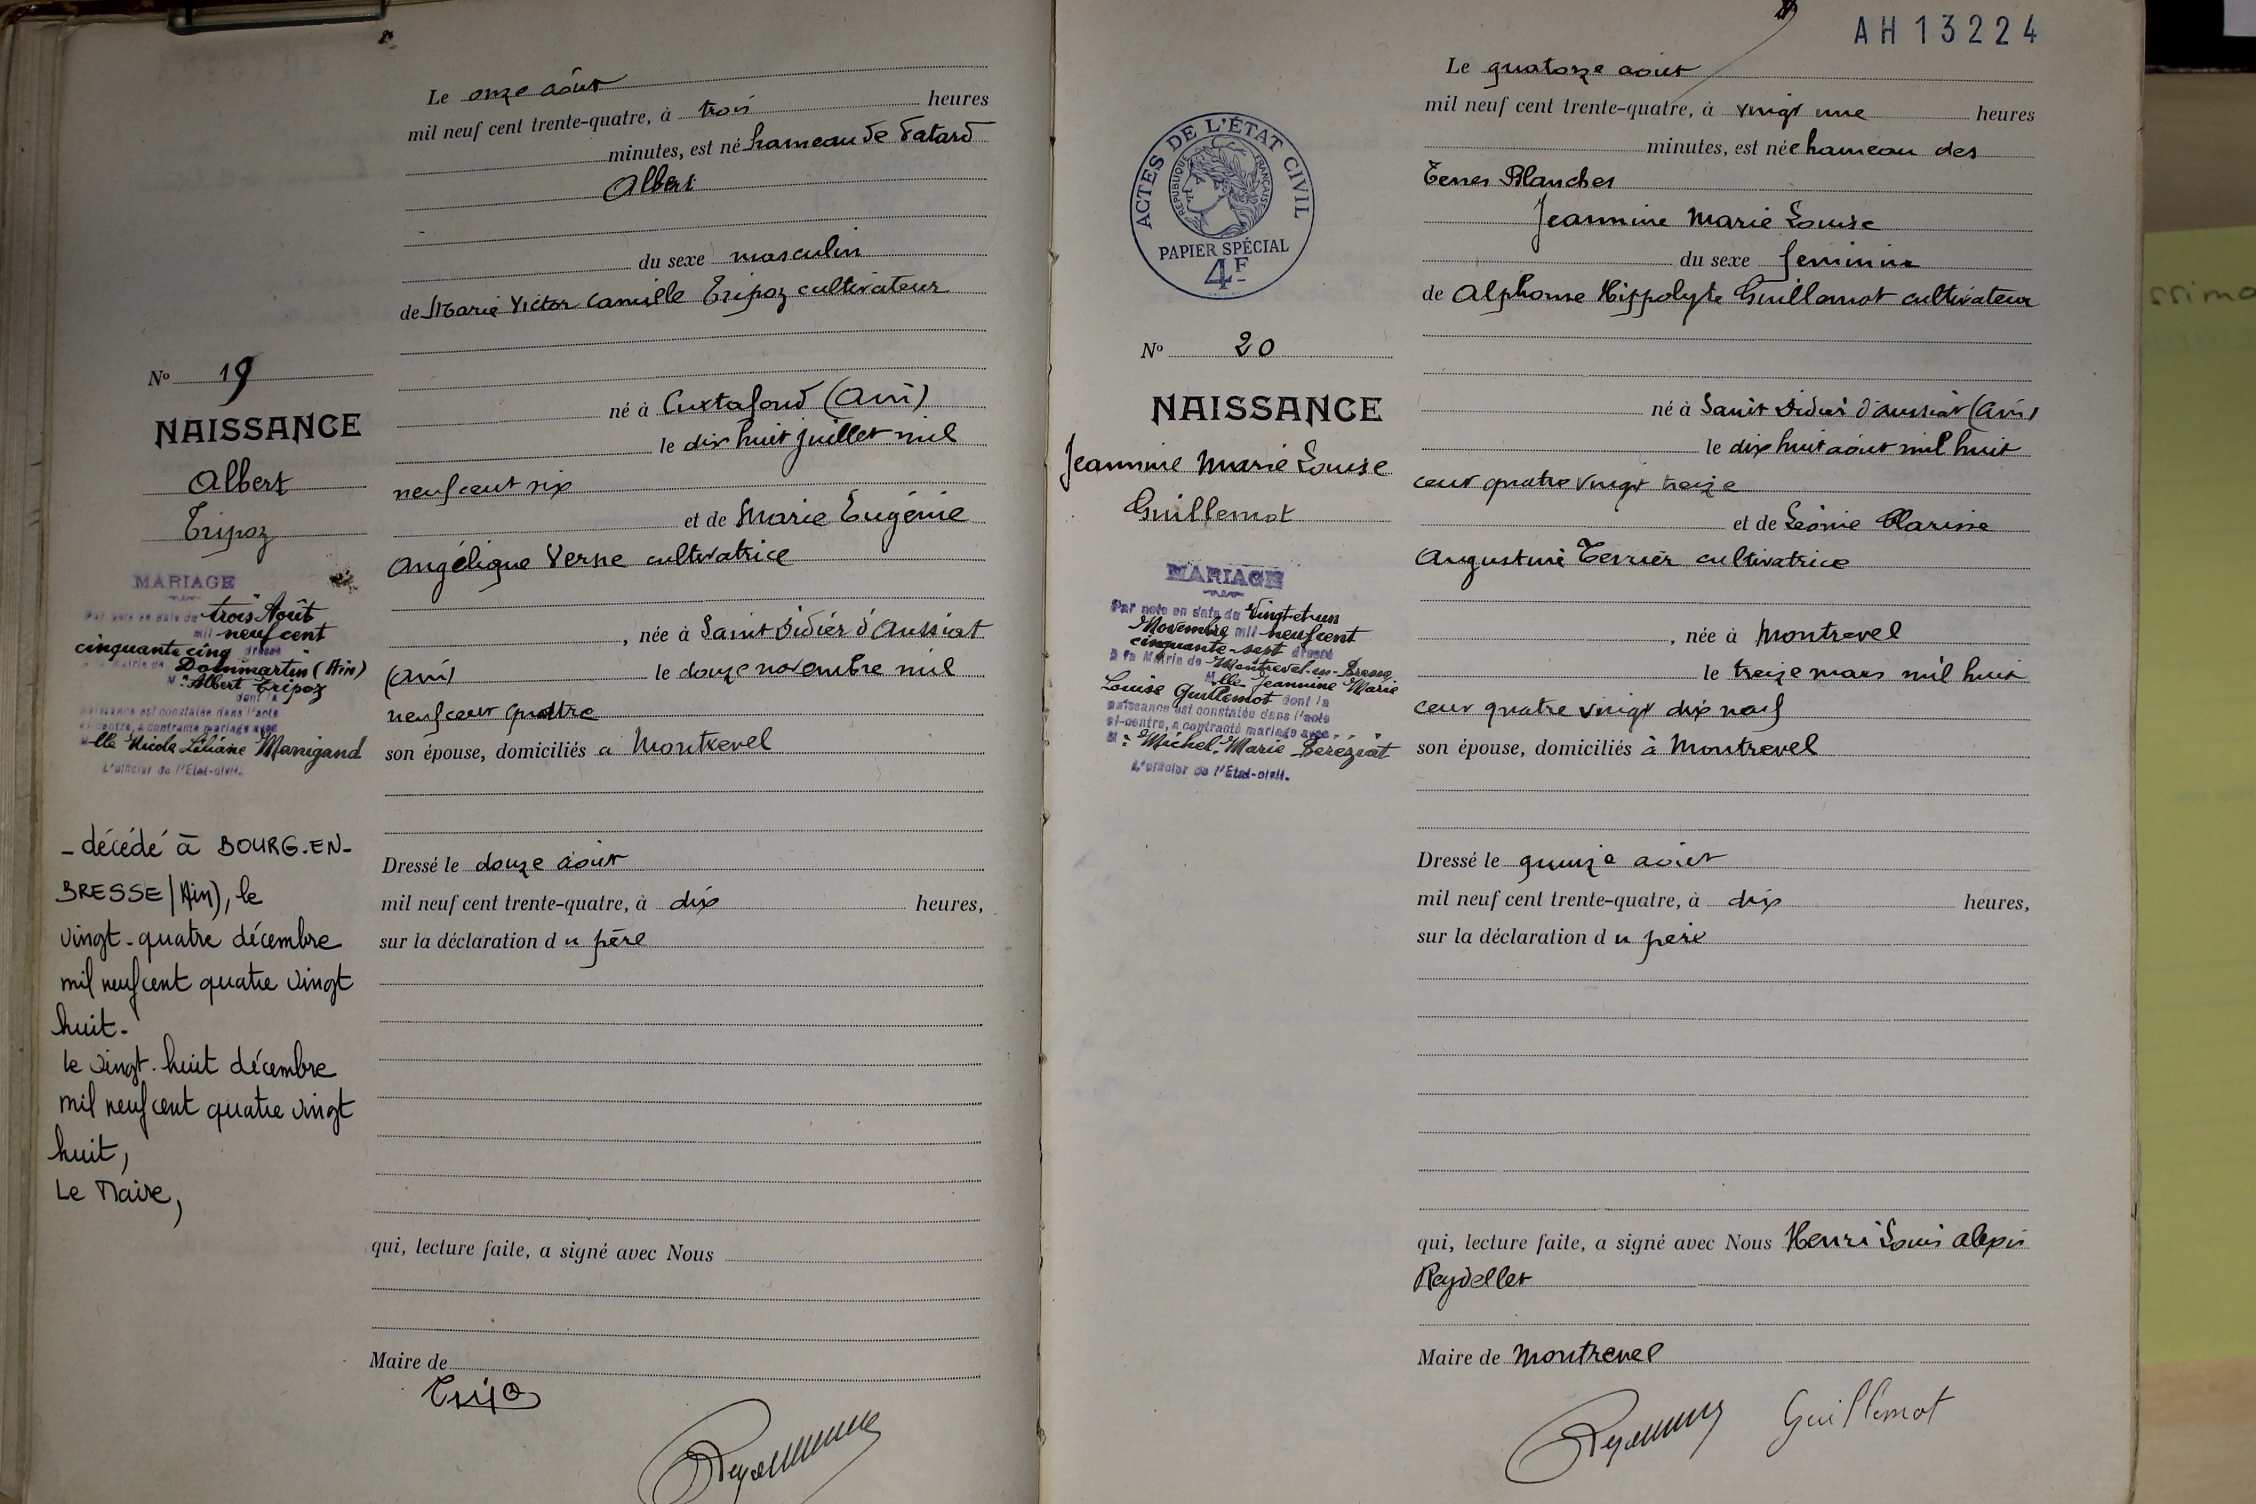 Le onze août
mil neuf cent trente-quatre, à trois heures
minutes, est né hameau de Tatard
Albert
du sexe masculin
de Marie Victor Camille Tripoz cultivateur
né à Curtafond (Ain)
le dix huit juillet mil
neuf cent six
et de Marie Eugénie
Angélique Verne cultivatrice
, née à Saint Didier d'Aussiat
(Ain) le douze novembre mil
neuf cent quatre
son épouse, domiciliés à Montrevel
Dressé le douze août
mil neuf cent trente-quatre, à dix heures,
sur la déclaration du père
qui, lecture faite, a signé avec Nous
Maire de
Nº 19
NAISSANCE
Albert
Tripoz
MARIAGE
Par note en date du trois Août
mil neuf cent
cinquante cinq dressé
à la Mairie de Dommartin (Ain)
Mr Albert Tripoz
dont la
naissance est constatée dans l'acte
ci-contre, a contracté mariage avec
Mlle Nicole Liliane Manigand
L'officier de l'Etat-civil.
- décédé à BOURG-EN-
BRESSE (Ain), le
vingt-quatre décembre
mil neuf cent quatre vingt
huit.
le vingt-huit décembre
mil neuf cent quatre vingt
huit,
Le Maire,
AH 13224
Le quatorze août
mil neuf cent trente-quatre, à vingt une heures
minutes, est née hameau des
Terres Blanches
Jeannine Marie Louise
du sexe féminin
de Alphonse Hippolyte Guillemot cultivateur
né à Saint Didier d'Aussiat (Ain)
le dix huit août mil huit
cent quatre vingt treize
et de Léonie Clarisse
Augustine Terrier cultivatrice
, née à Montrevel
le treize mars mil huit
cent quatre vingt dix neuf
son épouse, domiciliés à Montrevel
Dressé le quinze août
mil neuf cent trente-quatre, à dix heures,
sur la déclaration du père
qui, lecture faite, a signé avec Nous Henri Louis Alexis
Reydellet
Maire de Montrevel
Guillemot
ACTES DE L'ÉTAT CIVIL
RÉPUBLIQUE FRANÇAISE
PAPIER SPÉCIAL
4F
Nº 20
NAISSANCE
Jeannine Marie Louise
Guillemot
MARIAGE
Par note en date du Vingt-et-un
Novembre mil neuf cent
cinquante-sept dressé
à la Mairie de Montrevel-en-Bresse
Mlle Jeannine Marie
Louise Guillemot dont la
naissance est constatée dans l'acte
ci-contre, a contracté mariage avec
Mr Michel Marie Perézriat
L'officier de l'Etat-civil.